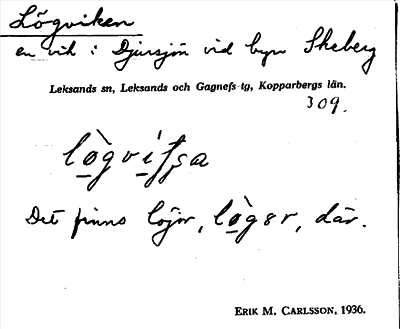 Lögviken
en vik i Djursjön vid byn Skeberg
Leksands sn, Leksands och Gagnefs tg, Kopparbergs län.
309.
Det finns löjor, lò̠gər, där.
ERIK M. CARLSSON, 1936.